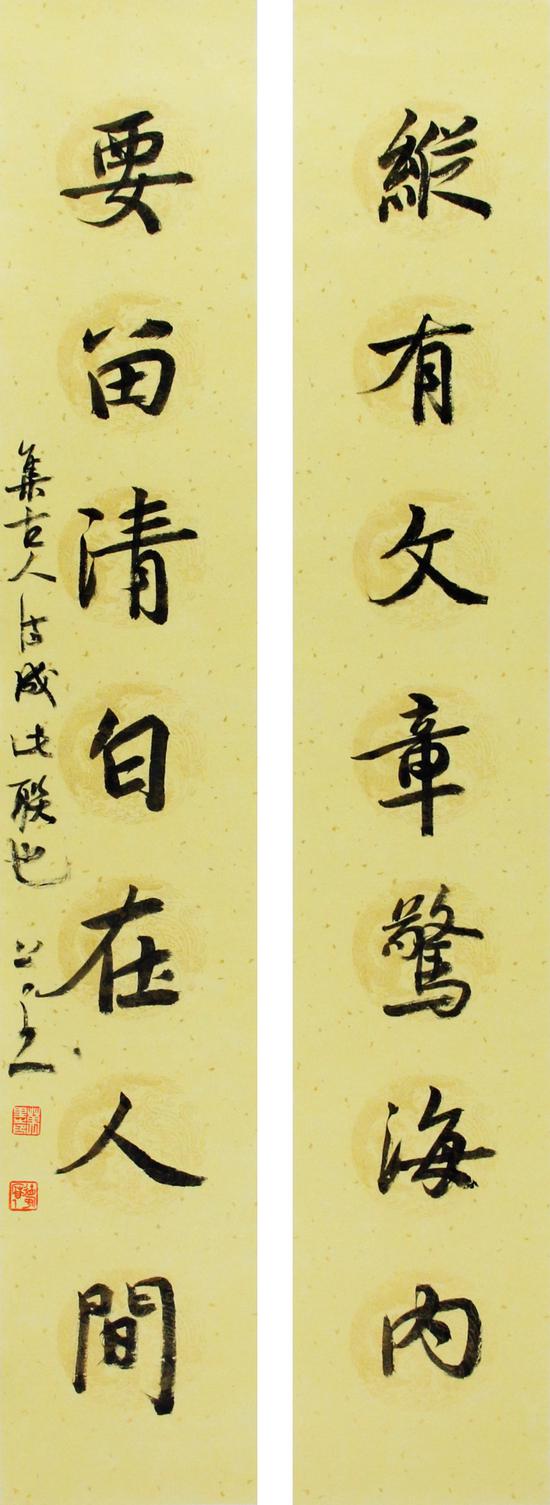 縱有文章驚海内
要留清白在人間
集古人詩成此聯也